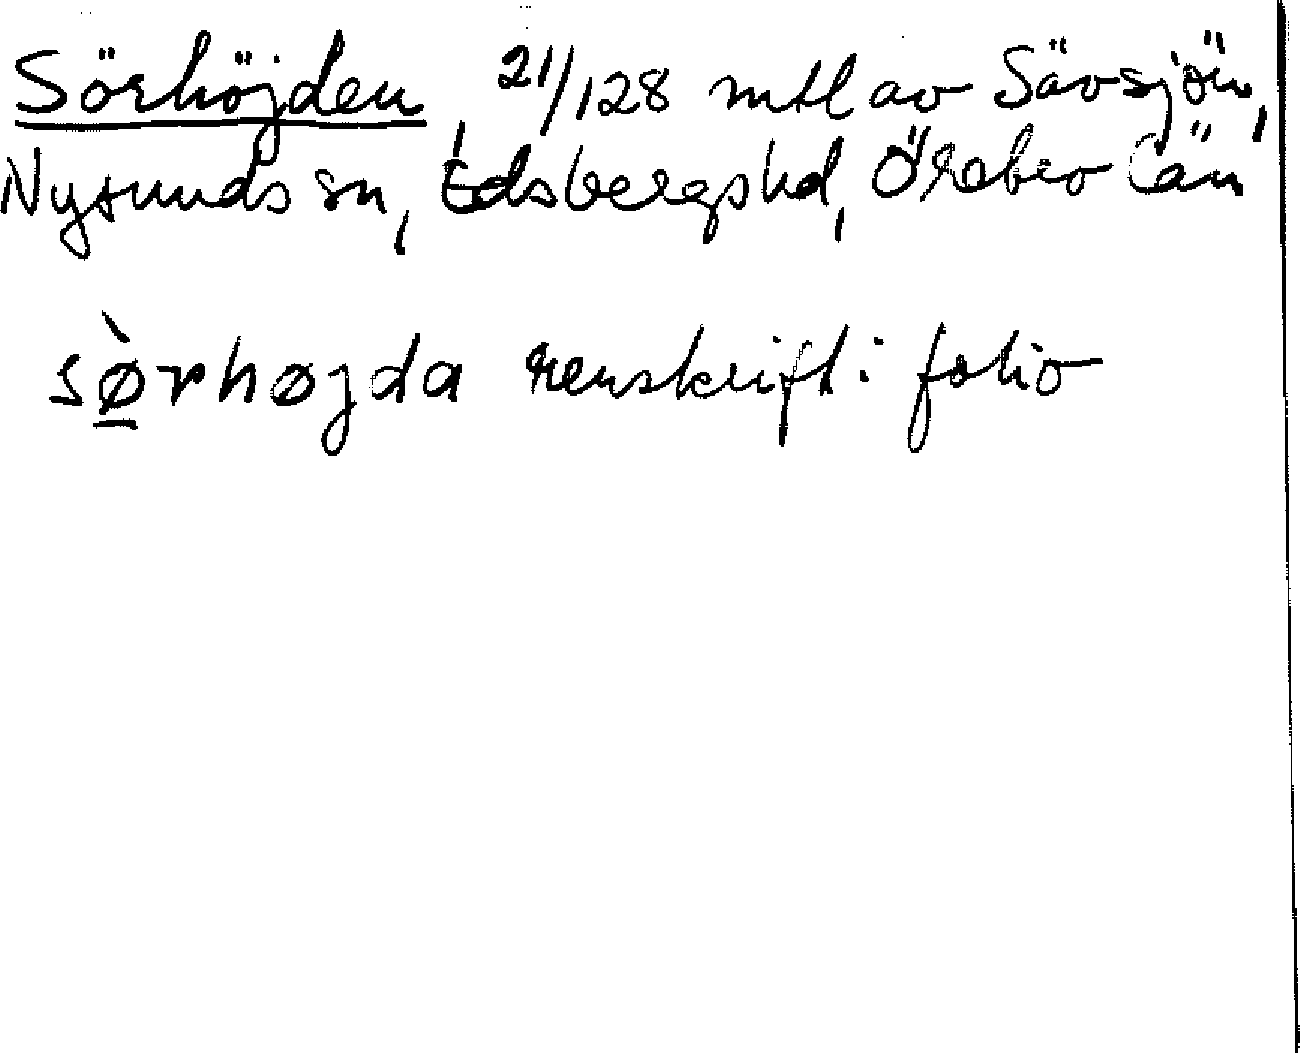 Sörhöjden, 21/128 mtl av Sävsjön,
Nysunds sn, Edsbergs hd, Örebro län
sø̱̀rhøjda renskrift i folio